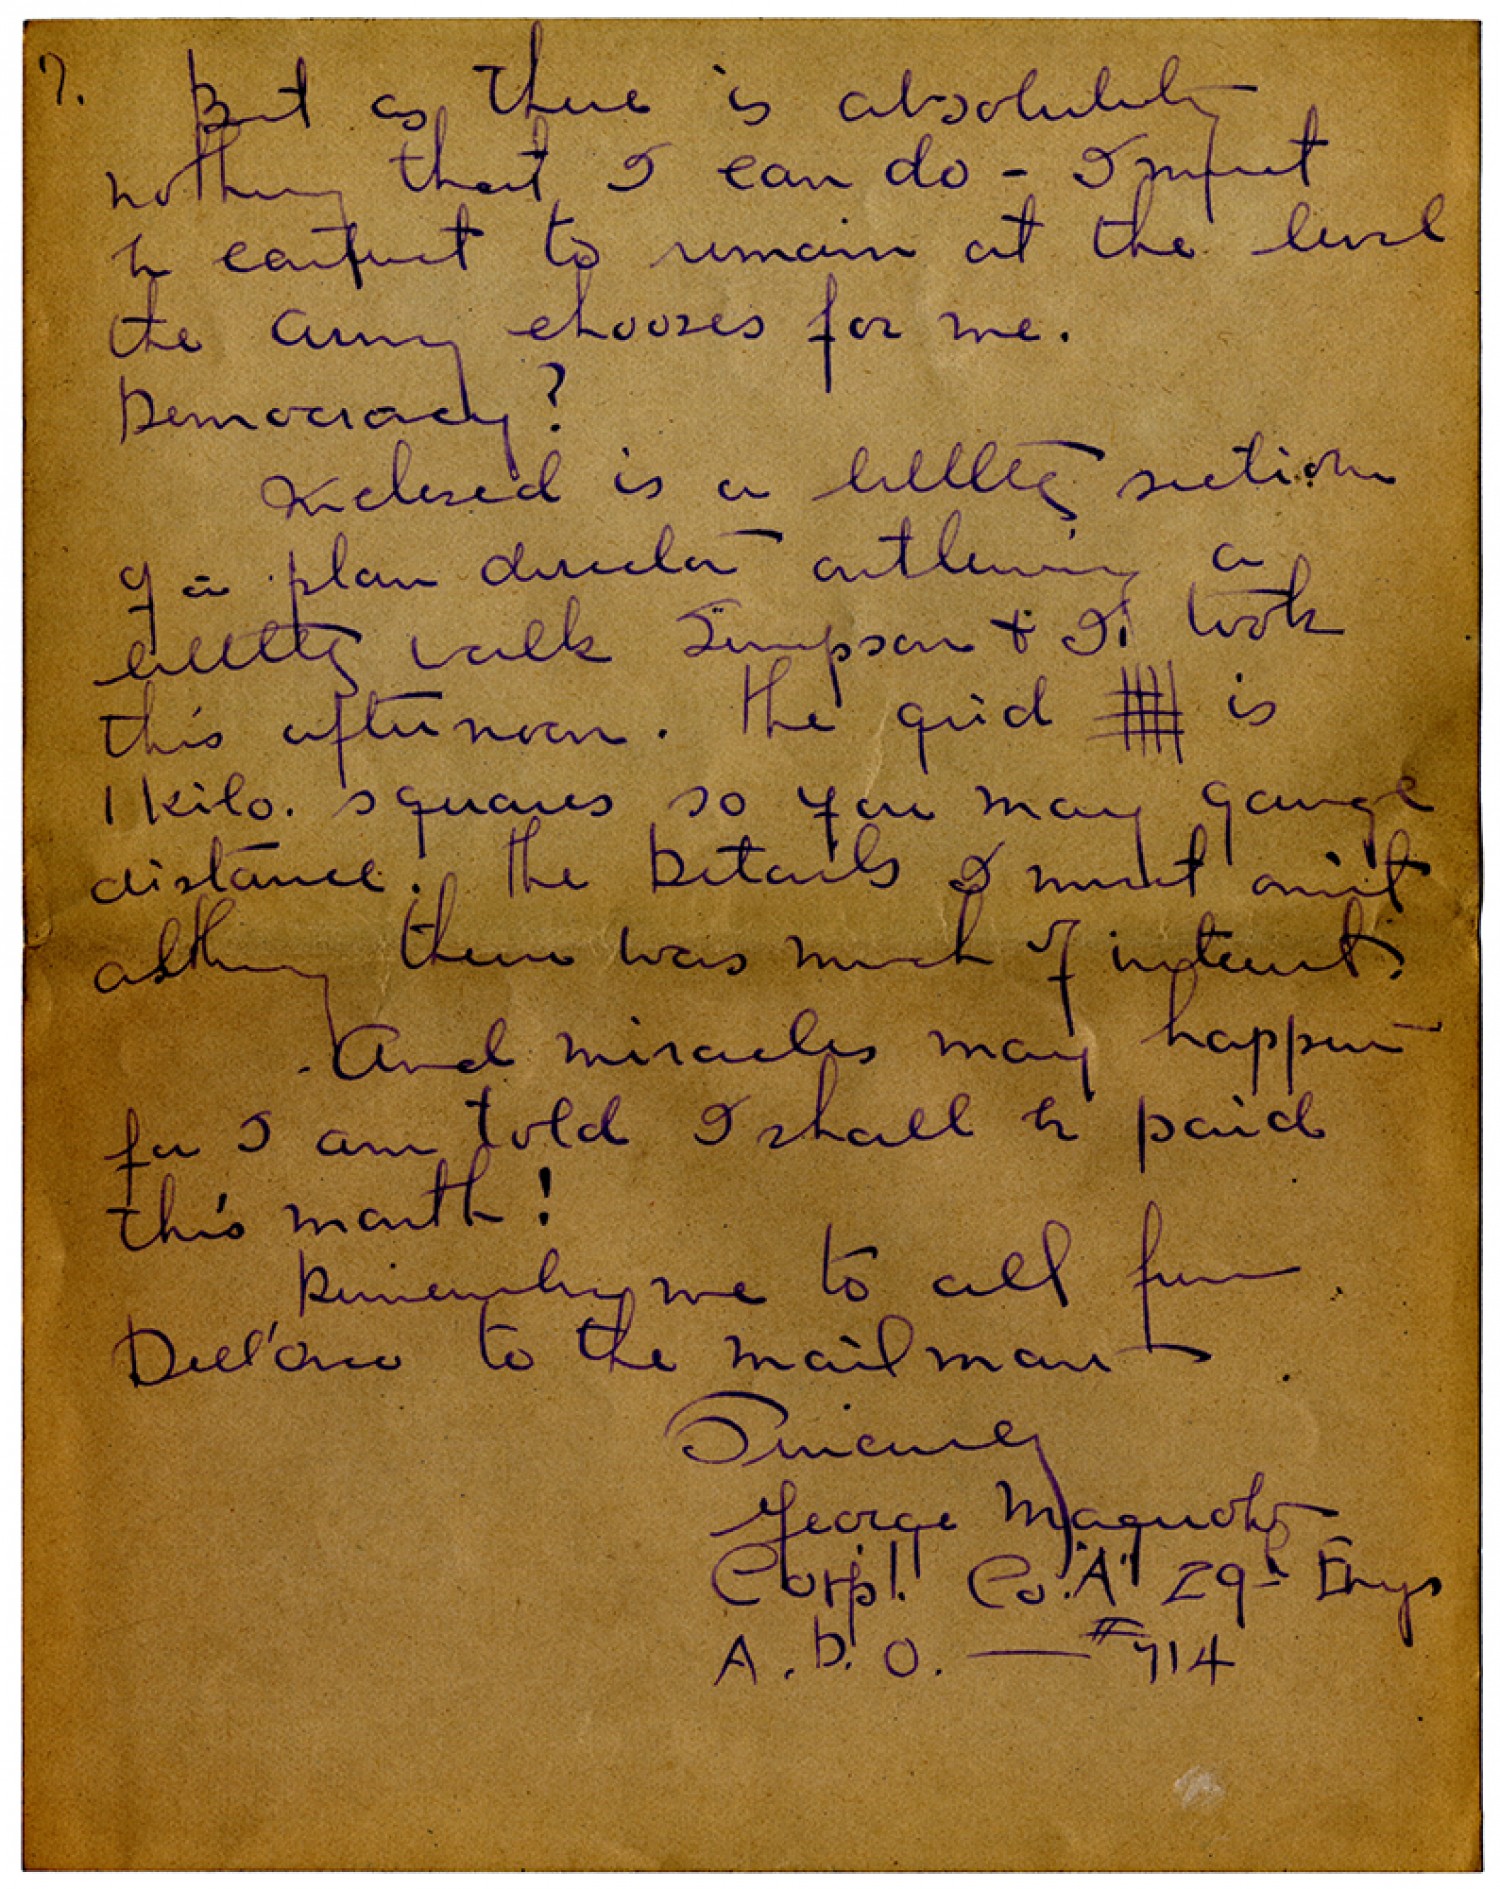 7. But as there is absolutely
nothing that I can do - I must
be content to remain at the level
the army chooses for me.
Democracy?
Inclosed is a little section
of a plan director outlining a
little walk Simpson & I took
this afternoon. The grid is
1 kilo. squares so you may gauge
distance. The Details I must omit
altho there was much of interest.
And miracles may happen
for I am told I shall be paid
this month!
Remember me to all from
Dell'Orco to the mailman.
Sincerely
George
Corp'l. Co. "A" 29th Engs
A.P.O. — #714